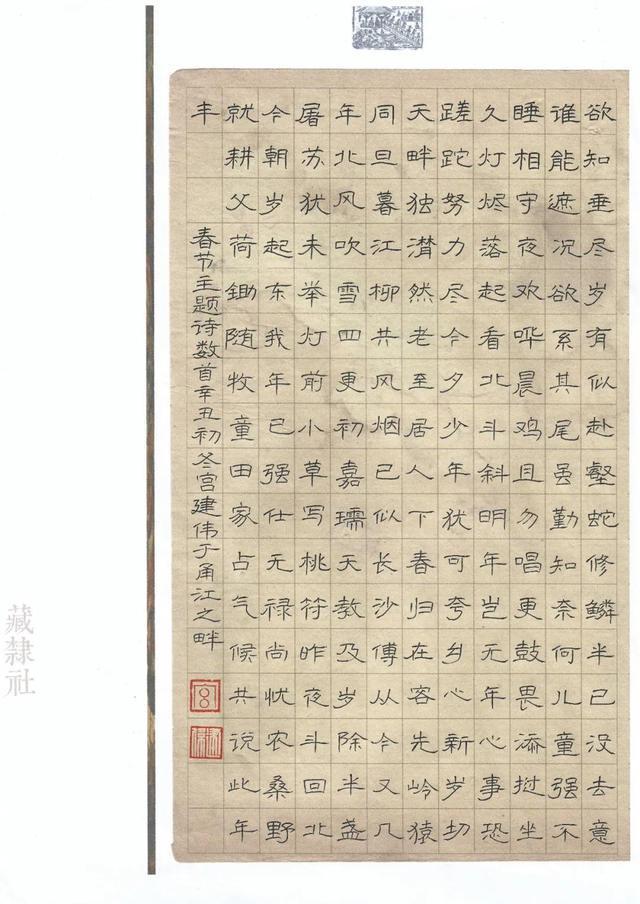 欲知垂尽岁有似赴壑蛇修鳞半已没去意
谁能遮况欲系其尾虽勤知奈何儿童强不
睡相守夜欢哗晨鸡且勿唱更鼓畏添挝坐
久灯烬落起看北斗斜明年岂无年心事恐
蹉跎努力尽今夕少年犹可夸乡心新岁切
天畔独潸然老至居人下春归在客先岭猿
同旦暮江柳共风烟已似长沙傅从今又几
年北风吹雪四更初嘉瑞天教及岁除半盏
屠苏犹未举灯前小草写桃符昨夜斗回北
今朝岁起东我年已强仕无禄尚忧农桑野
就耕父荷锄随牧童田家占气候共说此年
丰
春节主题诗数首辛丑初冬宫建伟于甬江之畔
宫
藏隶社